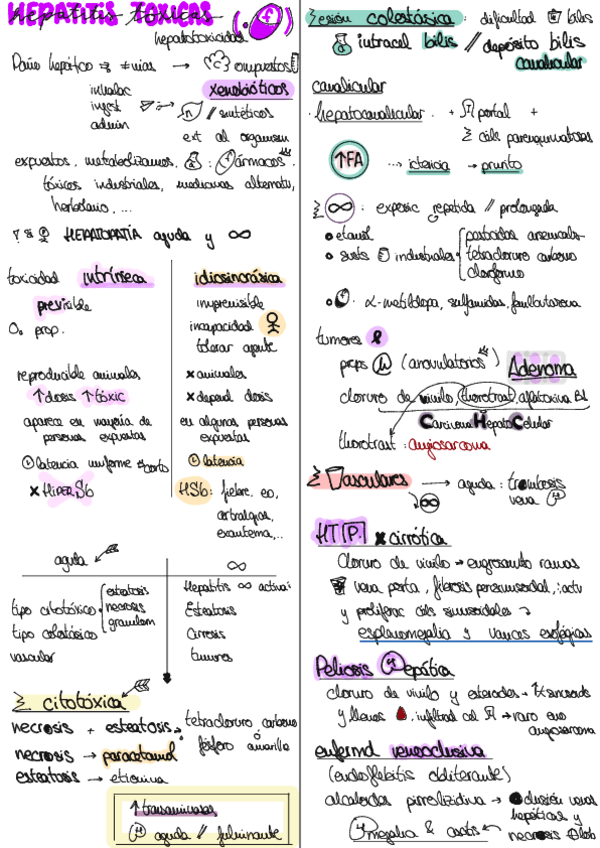 HEPATITIS TÓXICAS
hepatotoxicidad
Daño hepático
inhalac
ingest
admin
xenobióticos
// sintéticos
ext al organism
expuestos, metabolizamos
fármacos
tóxicos industriales, medicinas alternativ,
herbolario, ...
HEPATOPATÍA aguda y ∞
toxicidad intrínseca
previsible
prop.
reproducible animales
↑dosis ↑tóxic
aparece en mayoría de
personas expuestas
latencia uniforme
× HiperSb
idiosincrásica
imprevisible
incapacidad
tolerar agente
× animales
× depend dosis
en algunas personas
expuestas
latencia
HSb: fiebre, eo,
artralgias,
exantema,...
aguda
tipo citotóxico
esteatosis
necrosis
tipo colestásico
vascular
∞
Hepatitis ∞ activa
Esteatosis
Cirrosis
tumores
citotóxica
necrosis + esteatosis
tetracloruro carbono
fósforo amarillo
necrosis → paracetamol
esteatosis →
↑ transaminasas
aguda // fulminante
lesión colestásica: dificultad bilis
intracel bilis // depósito bilis
canalicular
canalicular
hepatocanalicular. + portal +
céls parenquimatosas
↑FA
ictericia → prurito
∞: exposic repetida // prolongada
etanol
industriales
tetracloruro carbono
cloroformo
α-metildopa, sulfamidas, fenilbutazona
tumores
(anovulatorios) Adenoma
cloruro de vinilo, thorotrast, aflatoxina B1
Carcinoma HepatoCelular
thorotrast: angiosarcoma
Vasculares
∞
aguda: trombosis
vena
HTP. × cirrótica
Cloruro de vinilo → engrosando ramas
vena porta, fibrosis perisinusoidal, activ
y proliferac céls sinusoidales →
esplenomegalia y varices esofágicas
Peliosis Hepática
cloruro de vinilo y esteroides →
y llenos
→ raro evo
angiosarcoma
enfermd venooclusiva
(endoflebitis obliterante)
alcaloides pirrolizidina → oclusión venas
hepáticas y
megalia & ascitis
necrosis